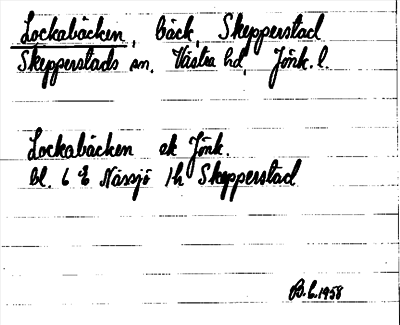 Lockabäcken, bäck, Skepperstad
Skepperstads sn, Västra hd, Jönk. l.
Lockabäcken ek Jönk.
bl. 6 E Nässjö 1h Skepperstad
B.C.1958